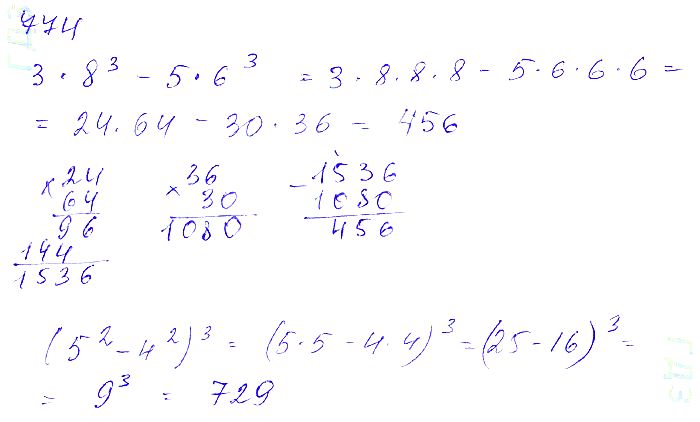 774
3 · 8³ - 5 · 6³ = 3 · 8 · 8 · 8 - 5 · 6 · 6 · 6 =
= 24 · 64 - 30 · 36 = 456
× 24
64
96
144
1536
× 36
30
1080
- 1536
1080
456
(5² - 4²)³ = (5 · 5 - 4 · 4)³ = (25 - 16)³ =
= 9³ = 729